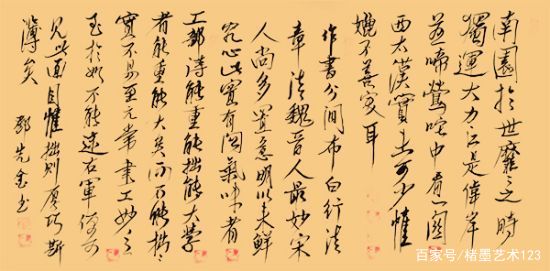 南園於世靡之時
獨運大力是偉
啼鶯中看一關
西大漢實未可少惟
媿不善變耳
作書分間布白行法
章法魏晉人最妙宋
人尚多置意明以來鮮
究心此實有關氣味者
工部得能重能拙能大學
者能重能大矣而不能拙
實不易至元常書工妙之
至於此不能遠右軍何可
見此面目惟拙則厚巧斯
薄矣 先金書
百家号/楮墨艺术123